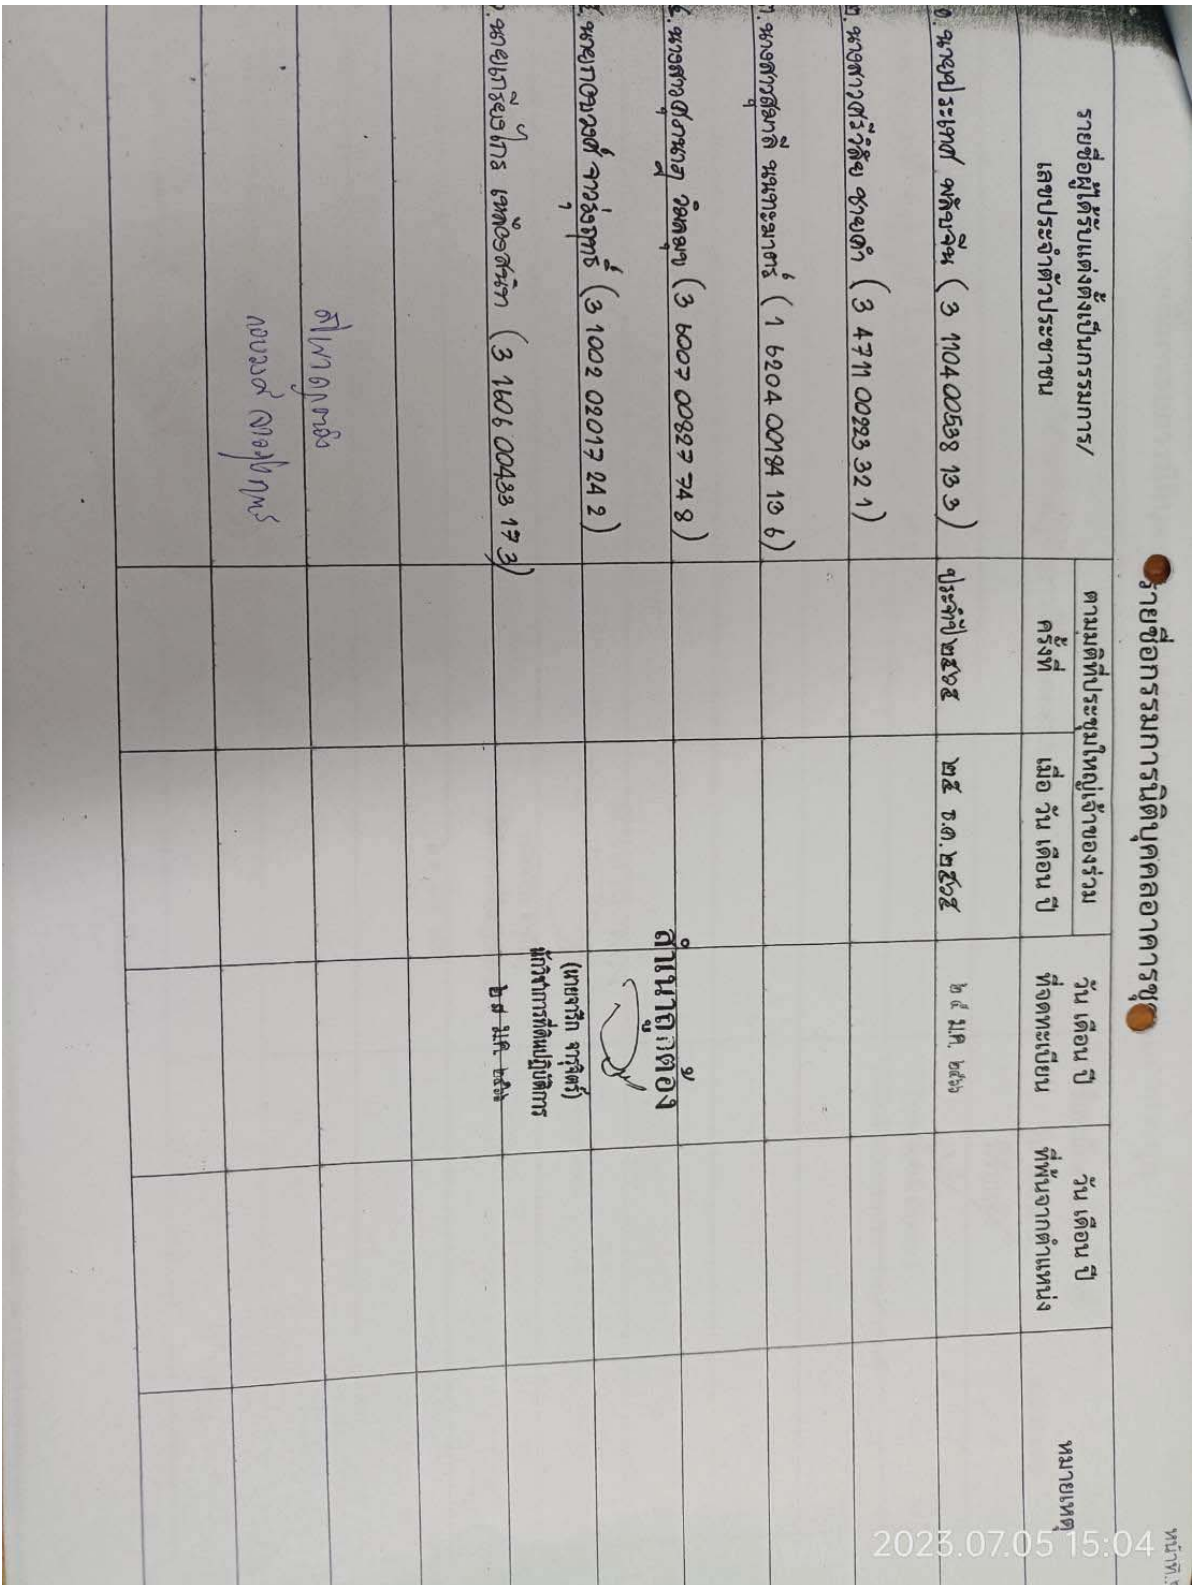 หน้าที่
รายชื่อกรรมการนิติบุคคลอาคารชุด
รายชื่อผู้ได้รับแต่งตั้งเป็นกรรมการ/
เลขประจำตัวประชาชน
ตามมติที่ประชุมใหญ่เจ้าของร่วม
ครั้งที่
เมื่อ วัน เดือน ปี
วัน เดือน ปี
ที่จดทะเบียน
วัน เดือน ปี
ที่พ้นจากตำแหน่ง
หมายเหตุ
๑. นายประเทศ พลับจีน (3 1104 00538 13 3)
ประจำปี ๒๕๖๕
๒๕ ๒๕๖๕
๒๕ ม.ค. ๒๕๖๖
๒. นางสาวศรีวิลัย ชายดำ (3 4711 00223 32 1)
๓. นางสาวสุมาลี นนทะมาตร์ (1 6204 00184 13 6)
๔. นางสาว (3 6007 00827 74 8)
สำเนาถูกต้อง
๕. นายกอบวงศ์ (3 1002 02017 24 2)
(นายจารึก จารุจิตร์)
นักวิชาการที่ดินปฏิบัติการ
นายเกรียงไกร เหลืองสนิท (3 1606 00433 17 3)
ม.ค. ๒๕๖๖
กอบวงศ์
2023.07.05 15:04